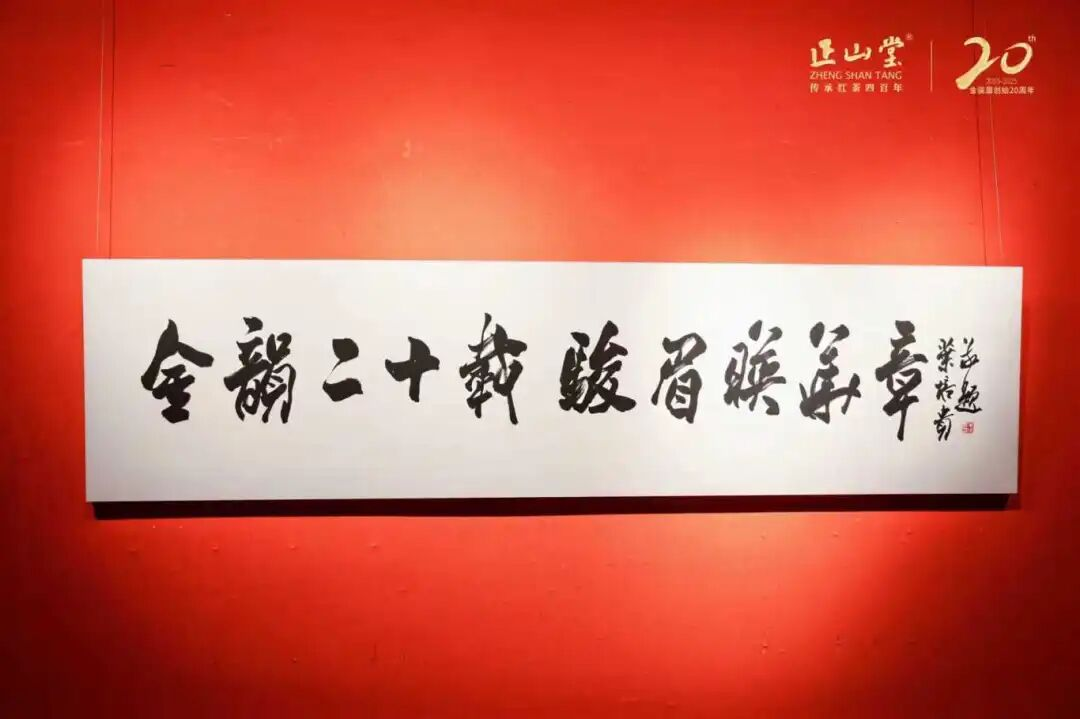 正山堂®
ZHENG SHAN TANG
传承红茶四百年
20th
2005-2025
金骏眉创始20周年
金韻二十載 駿眉暎華章
葉培貴
敬題